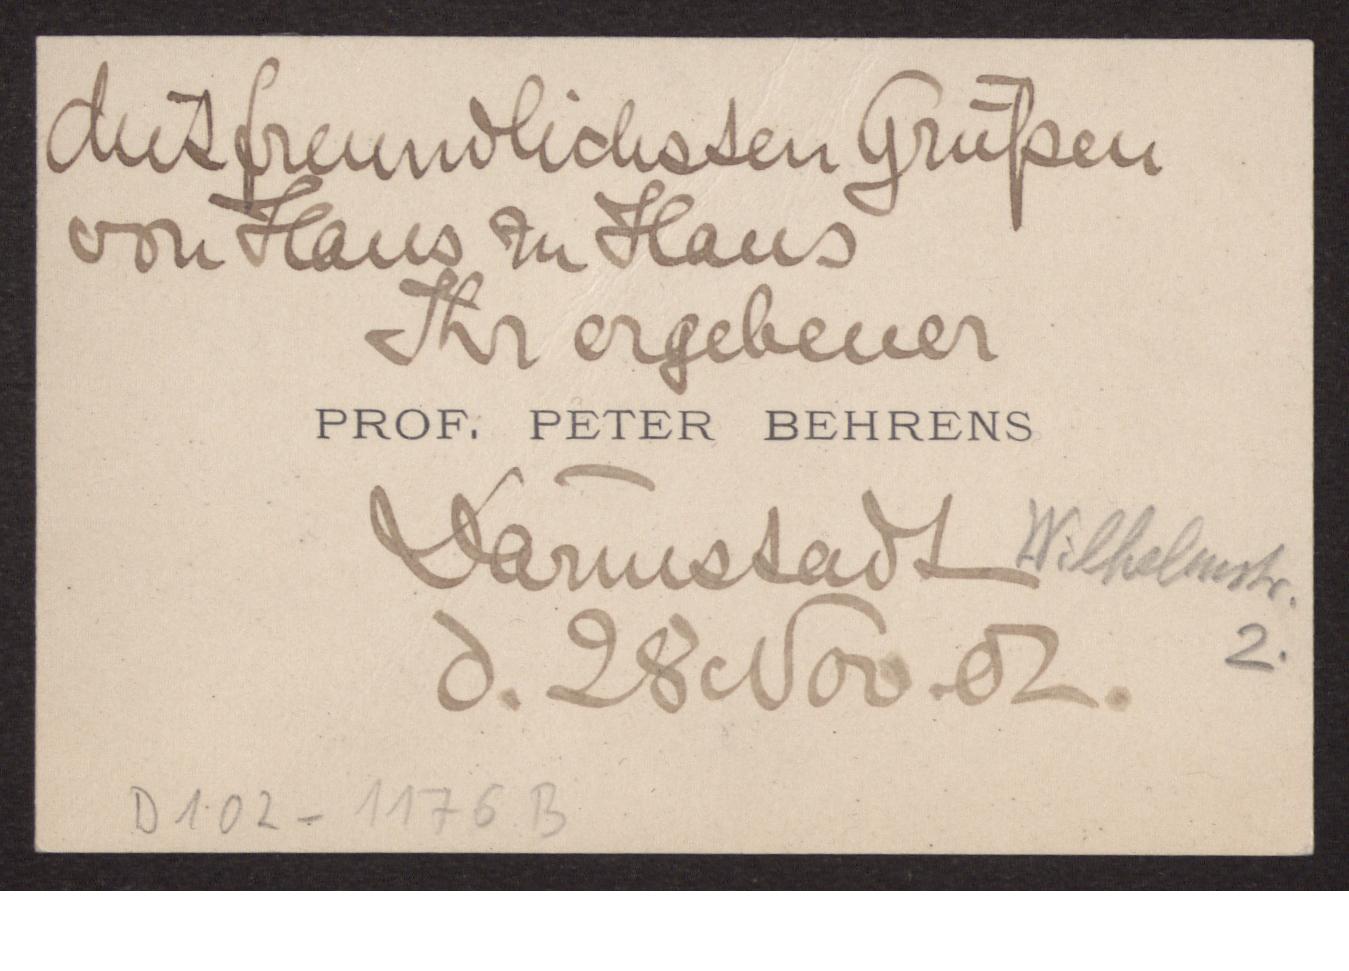 Mit freundlichsten Grüßen
von Haus zu Haus
Ihr ergebener
PROF. PETER BEHRENS
Darmstadt Wilhelmstr.
2.
d. 28 Nov. 02.
D 102 - 1176 B